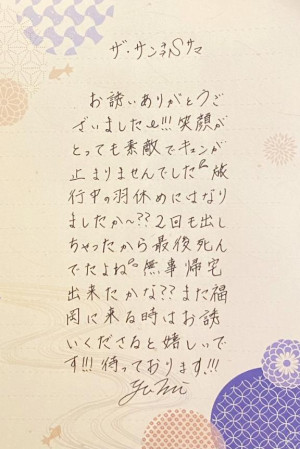 ザ・サンネSサマ
お誘いありがとうご
ざいました!!!笑顔が
とっても素敵でキュンが
止まりませんでした 旅
行中の羽休めにはなり
ましたか〜??2回も出し
ちゃったから最後死ん
でたよね 無事帰宅
出来たかな??また福
岡に来る時はお誘
いくださると嬉しいで
す!!!待っております!!!
yuMi